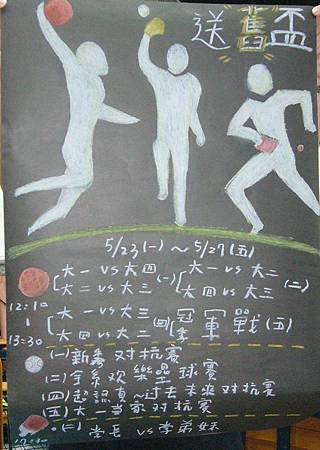 送"舊"盃
5/23(一)~5/27(五)
大一 vs 大四 (一) 大一 vs 大二 (二)
大二 vs 大三 大四 vs 大三
12:10
大一 vs 大三 (四) 冠季軍戰(五)
大四 vs 大二
13:30
(一)新秀對抗賽
(二)全系歡樂壘球賽
(四)超認真~過去未來對抗賽
(五)大一當家對抗賽
(三)學長 vs 學弟妹
17:30